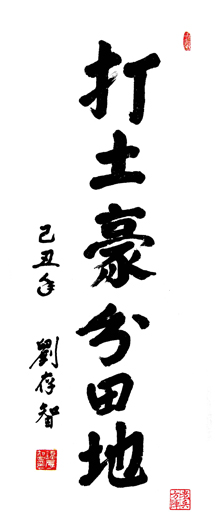 打土豪分田地
己丑年
劉存智